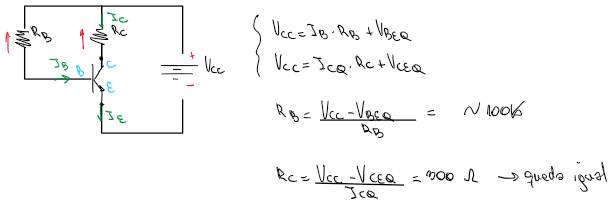 I_C
R_B
R_C
I_B
B
C
E
I_E
+
-
V_CC
V_CC = I_B · R_B + V_BEQ
V_CC = I_CQ · R_C + V_CEQ
R_B = (V_CC - V_BEQ) / R_B = ~ 100k
R_C = (V_CC - V_CEQ) / I_CQ = 300 Ω → queda igual